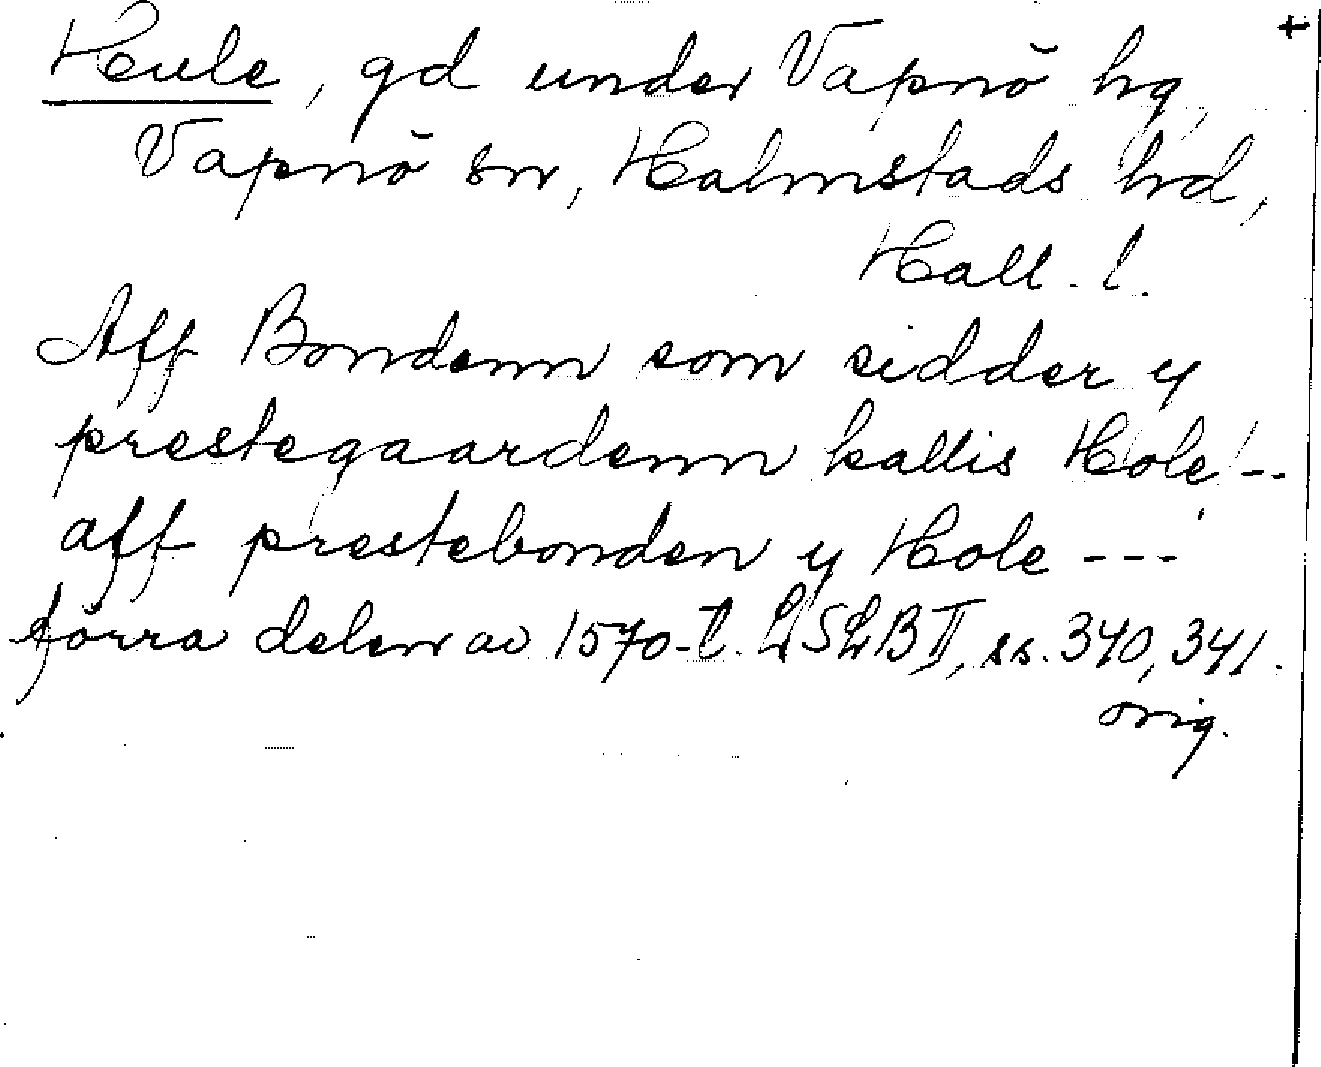 +
Hule, gd under Vapnö hg,
Vapnö sn, Halmstads hd,
Hall. l.
Aff Bondenn som sidder y
prestegaardenn kallis Hole --
aff prestebonden y Hole ---
förra delen av 1570-t. LSLB II, ss. 340, 341.
orig.